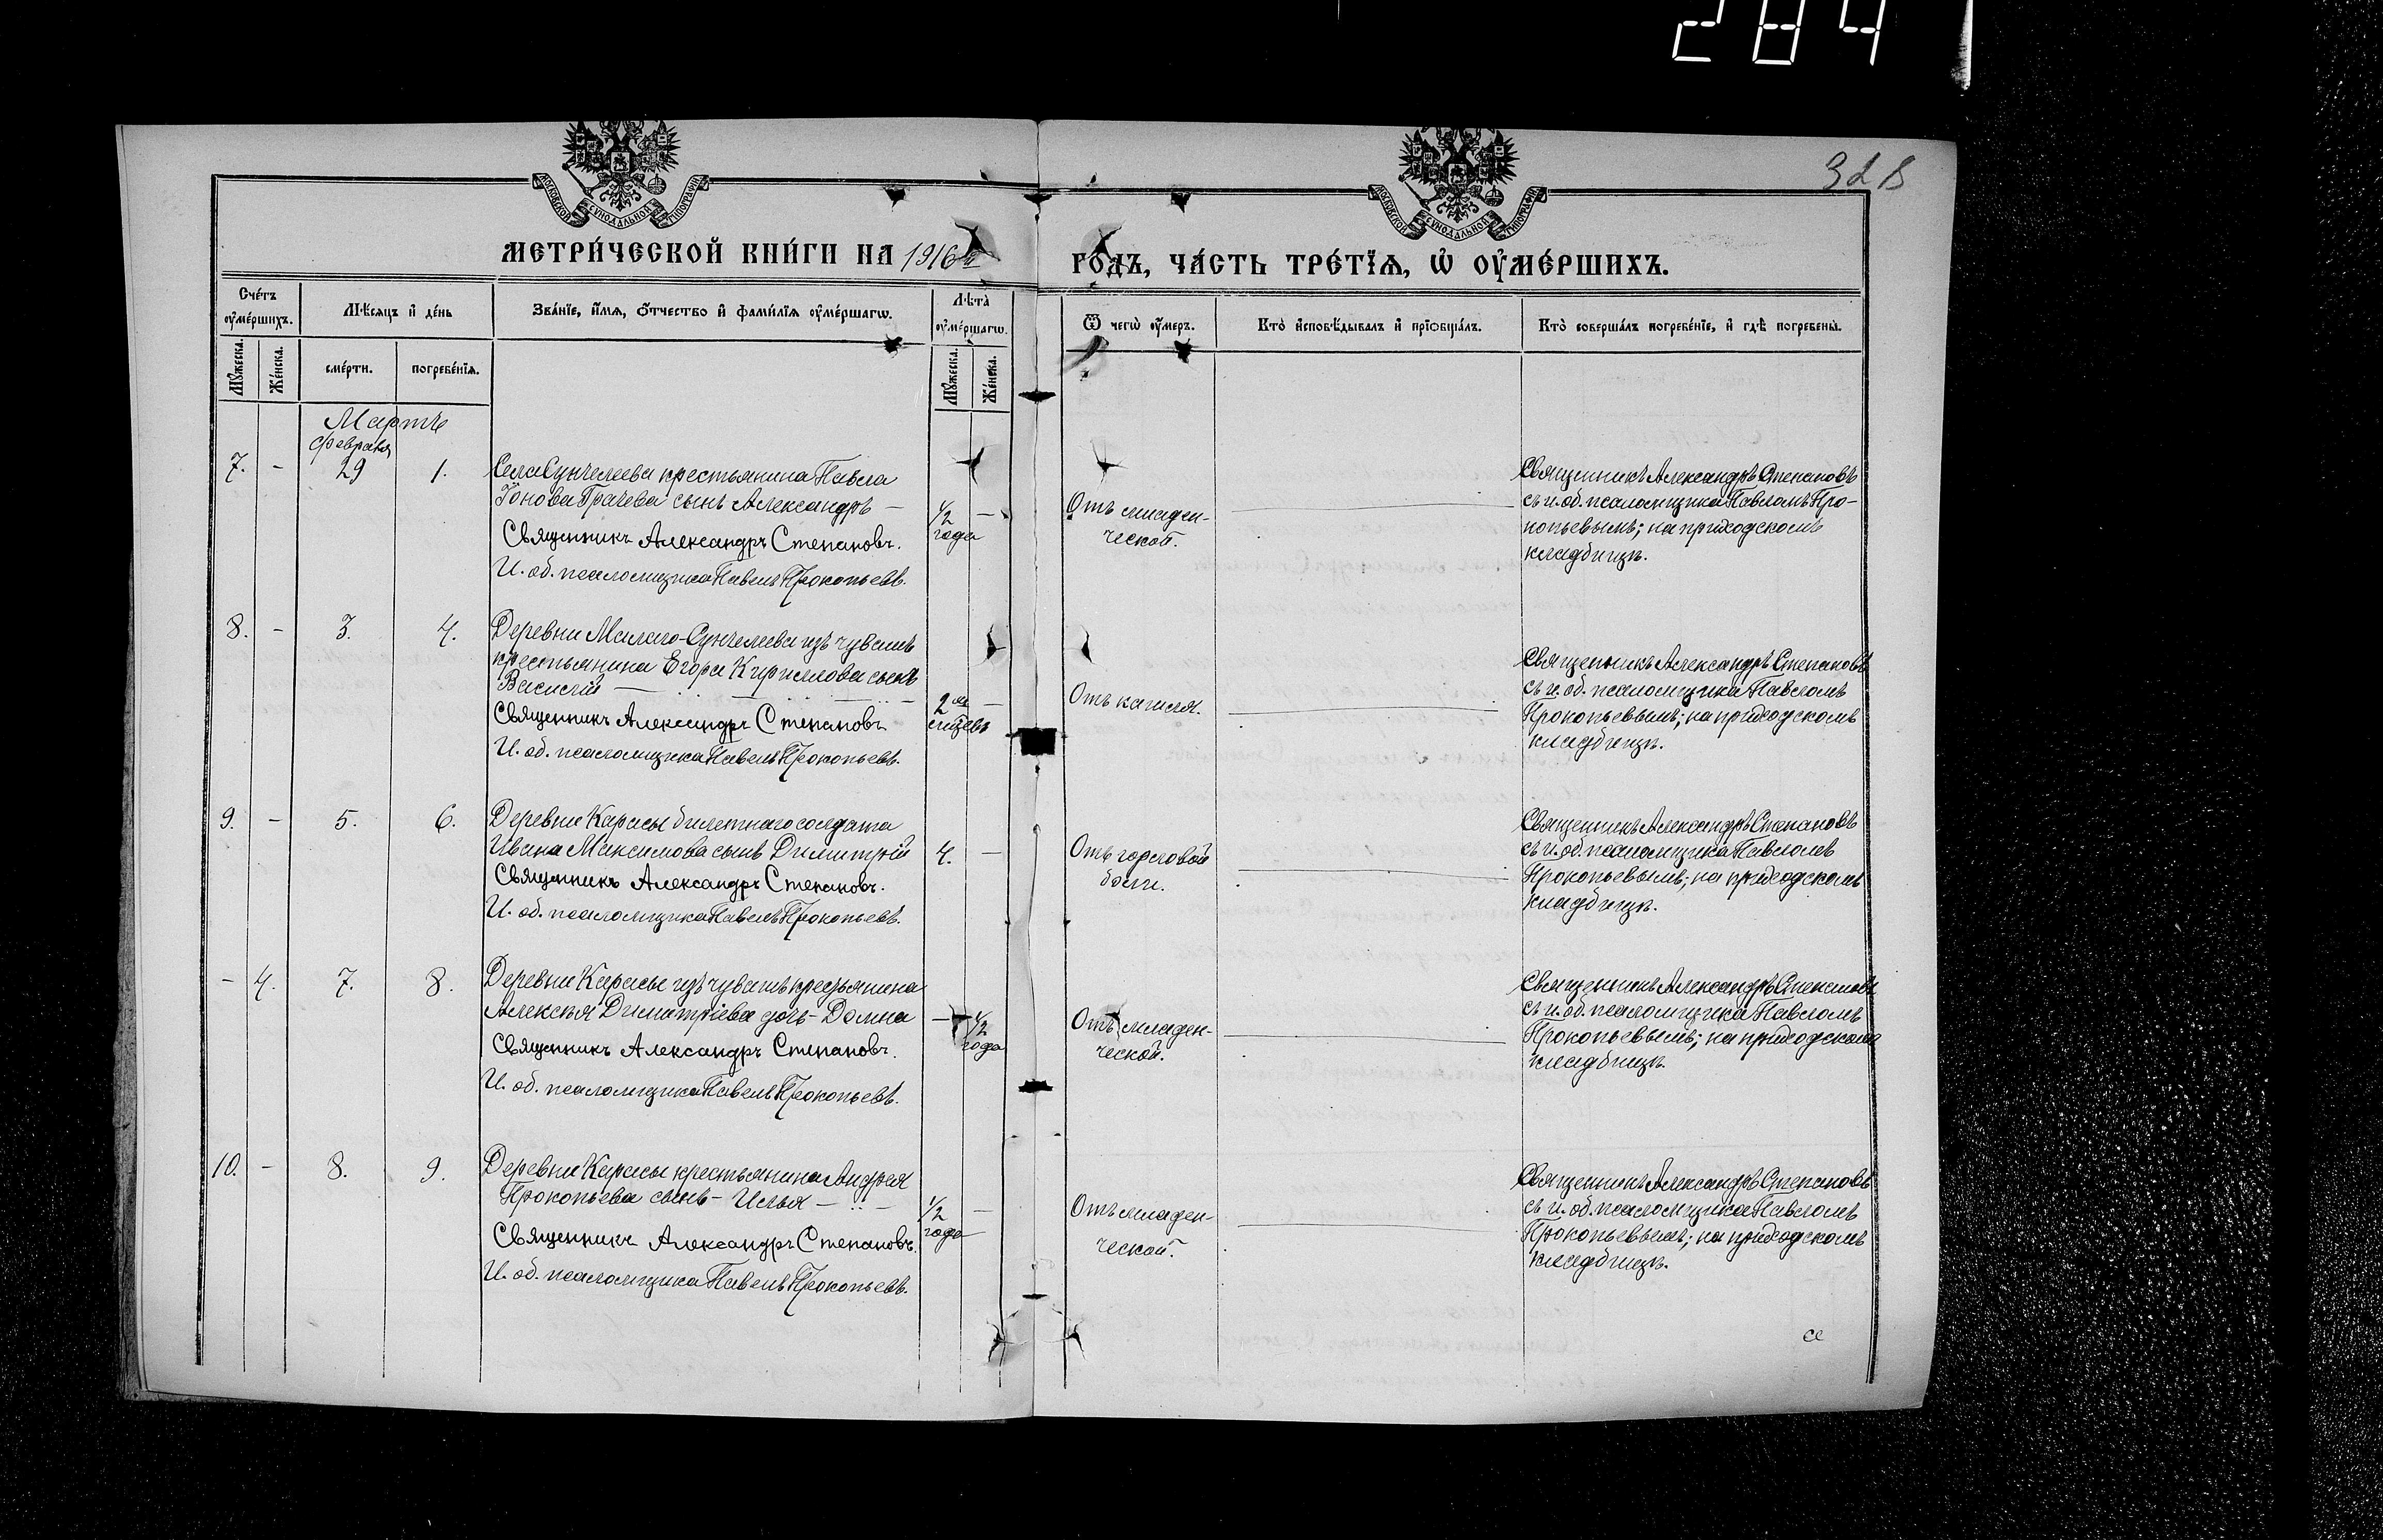 284
МОСКОВСКОЙ СѴНОДАЛЬНОЙ ТИПОГРАФІИ
МОСКОВСКОЙ СѴНОДАЛЬНОЙ ТИПОГРАФІИ
МЕТРИ́ЧЕСКОЙ КНИ́ГИ НА 1916й
ГО́ДЪ, ЧА́СТЬ ТРЕ́ТЇѦ, Ѡ҆ ОУ҆МЕ́РШИХЪ.
Сче́тъ оу҆ме́ршихъ.
Мѣ́сѧцъ и҆ де́нь
Зва́нїе, и҆́мѧ, ѻ҆́тчество и҆ фами́лїѧ оу҆ме́ршагѡ.
Лѣ́та̀ оу҆ме́ршагѡ.
Ѿ чегѡ̀ оу҆́меръ.
Кто̀ и҆сповѣ́дывалъ и҆ прїѡбща́лъ.
Кто̀ соверша́лъ погребе́нїе, и҆ гдѣ̀ погребены̀.
Мꙋ́жеска.
Же́нска.
сме́рти.
погребе́нїѧ.
Мꙋ́жеска.
Же́нска.
Мартъ
февраля
7. - 29 1.
Села Сунчелеева крестьянина Павла
Іонова Грачева сынъ Александръ -
Священникъ Александръ Степановъ.
И. об. псаломщика Павелъ Прокопьевъ.
1/2 года -
Отъ младен-
ческой.
Священникъ Александръ Степановъ
съ и. об. псаломщика Павломъ Про-
копьевымъ; на приходскомъ
кладбищѣ.
8. - 3. 4.
Деревни Малаго-Сунчелеева изъ чувашъ
крестьянина Егора Кириллова сынъ
Василій
Священникъ Александръ Степановъ
И. об. псаломщика Павелъ Прокопьевъ.
2 -
Отъ кашля.
Священникъ Александръ Степановъ
съ и. об. псаломщика Павломъ
Прокопьевымъ; на приходскомъ
кладбищѣ.
9. - 5. 6.
Деревни Карасы билетнаго солдата
Ивана Максимова сынъ Димитрій
Священникъ Александръ Степановъ.
И. об. псаломщика Павелъ Прокопьевъ.
4. -
Отъ горловой
боли.
Священникъ Александръ Степановъ
съ и. об. псаломщика Павломъ
Прокопьевымъ; на приходскомъ
кладбищѣ.
- 4. 7. 8.
Деревни Карасы изъ чувашъ крестьянина
Алексѣя Димитріева дочь - Домна
Священникъ Александръ Степановъ.
И. об. псаломщика Павелъ Прокопьевъ.
- 1/2 года
Отъ младен-
ческой.
Священникъ Александръ Степановъ
съ и. об. псаломщика Павломъ
Прокопьевымъ; на приходскомъ
кладбищѣ.
10. - 8. 9.
Деревни Карасы крестьянина Андрея
Прокопьева сынъ - Илья -
Священникъ Александръ Степановъ.
И. об. псаломщика Павелъ Прокопьевъ.
1/2 года -
Отъ младен-
ческой.
Священникъ Александръ Степановъ
съ и. об. псаломщика Павломъ
Прокопьевымъ; на приходскомъ
кладбищѣ.